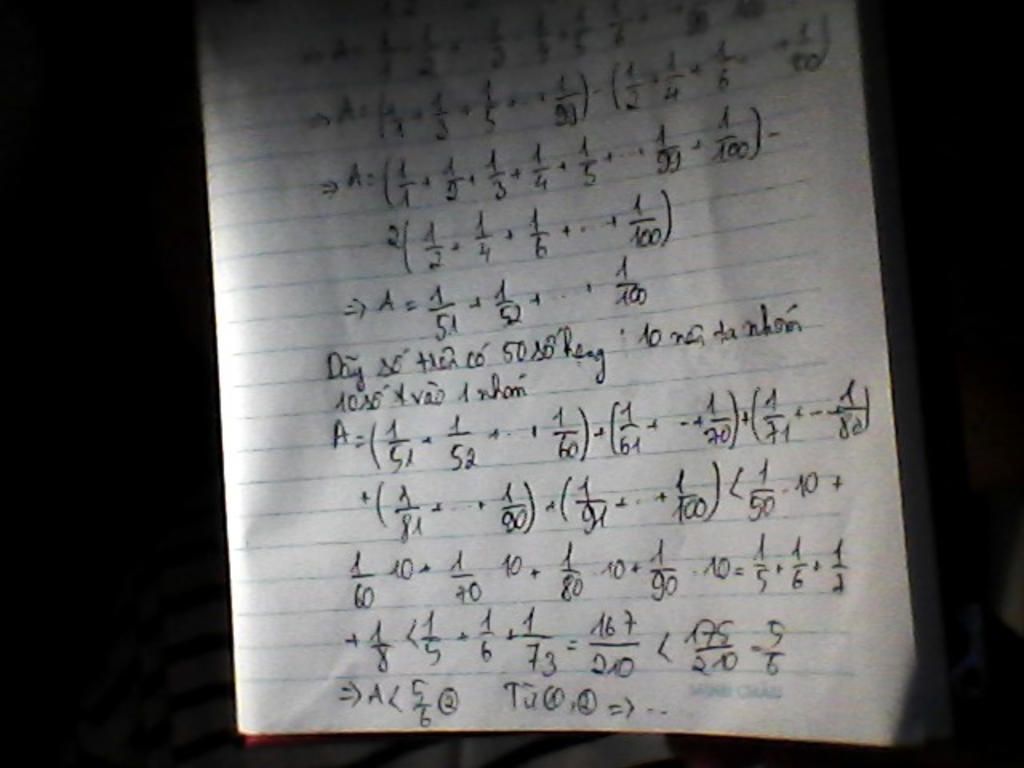 ⇒ A = 1/1 - 1/2 + 1/3 - 1/4 + 1/5 - 1/6 + ...
⇒ A = (1/1 + 1/3 + 1/5 + ... + 1/99) - (1/2 + 1/4 + 1/6 ... + 1/100)
⇒ A = (1/1 + 1/2 + 1/3 + 1/4 + 1/5 + ... + 1/99 + 1/100) -
2(1/2 + 1/4 + 1/6 + ... + 1/100)
⇒ A = 1/51 + 1/52 + ... + 1/100
Dãy số trên có 50 số hạng : 10 nên ta nhóm
10 số vào 1 nhóm
A = (1/51 + 1/52 + ... + 1/60) + (1/61 + ... + 1/70) + (1/71 + ... + 1/80)
+ (1/81 + ... + 1/90) + (1/91 + ... + 1/100) < 1/50 . 10 +
1/60 . 10 + 1/70 . 10 + 1/80 . 10 + 1/90 . 10 = 1/5 + 1/6 + 1/7
+ 1/8 < 1/5 + 1/6 + 1/7 3 = 167/210 < 175/210 = 5/6
⇒ A < 5/6 ② Từ ①, ② ⇒ ...
MINH CHÂU